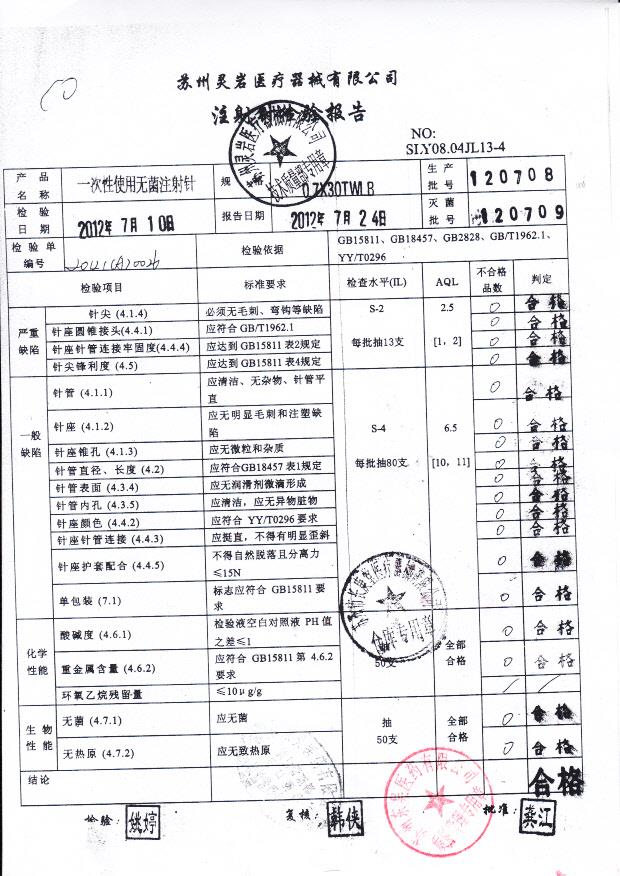 苏州灵岩医疗器械有限公司
注射针检验报告
NO:
SLY08.04JL13-4
产品名称 一次性使用无菌注射针 规格 0.7X30TWLB 生产批号 120708
检验日期 2012年7月10日 报告日期 2012年7月24日 灭菌批号 120709
检验单编号 检验依据 GB15811、GB18457、GB2828、GB/T1962.1、
YY/T0296
检验项目 标准要求 检查水平(IL) AQL 不合格品数 判定
严重缺陷
针尖 (4.1.4) 必须无毛刺、弯钩等缺陷 S-2 2.5 0 合格
针座圆锥接头(4.4.1) 应符合 GB/T1962.1 0 合格
针座针管连接牢固度(4.4.4) 应达到 GB15811 表2规定 每批抽13支 [1, 2] 0 合格
针尖锋利度 (4.5) 应达到 GB15811 表4规定 0 合格
一般缺陷
针管 (4.1.1) 应清洁、无杂物、针管平直 0 合格
针座 (4.1.2) 应无明显毛刺和注塑缺陷 S-4 6.5 0 合格
针座锥孔 (4.1.3) 应无微粒和杂质 0 合格
针管直径、长度 (4.2) 应符合GB18457 表1规定 每批抽80支 [10, 11] 0 合格
针管表面 (4.3.4) 应无润滑剂微滴形成 0 合格
针管内孔 (4.3.5) 应清洁，应无异物脏物 0 合格
针座颜色 (4.4.2) 应符合 YY/T0296 要求 0 合格
针座针管连接 (4.4.3) 应挺直，不得有明显歪斜 0 合格
针座护套配合 (4.4.5) 不得自然脱落且分离力
≤15N 0 合格
单包装 (7.1) 标志应符合 GB15811 要求 0 合格
化学性能
酸碱度 (4.6.1) 检验液空白对照液 PH 值
之差≤1 0 合格
重金属含量 (4.6.2) 应符合 GB15811 第 4.6.2
要求 50支 全部合格 0 合格
环氧乙烷残留量 ≤10μg/g / /
生物性能
无菌 (4.7.1) 应无菌 抽50支 全部合格 0 合格
无热原 (4.7.2) 应无致热原 0 合格
结论 合格
检验: 姚婷 复核: 韩侠 批准: 龚江